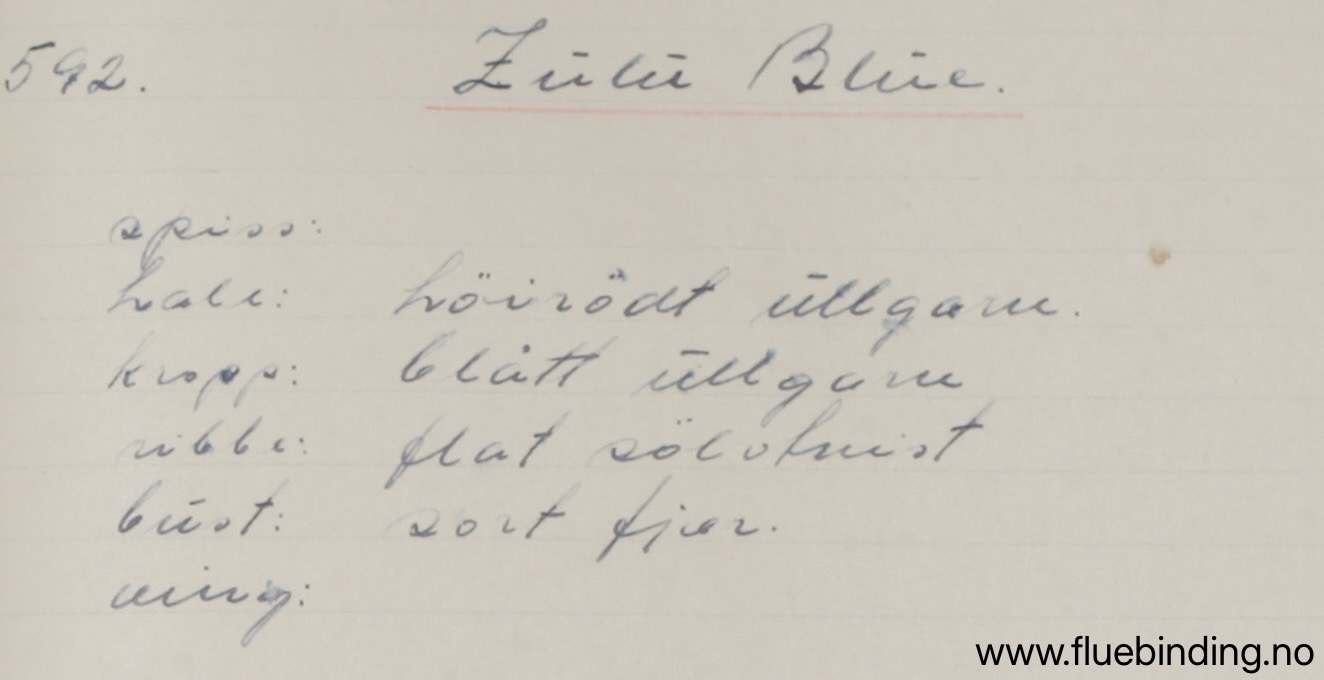 592. Zulu Blue.
spiss:
hale: höirödt ullgarn.
kropp: blått ullgarn
ribbe: flat sölvtvist
bust: sort fjær.
ving:
www.fluebinding.no